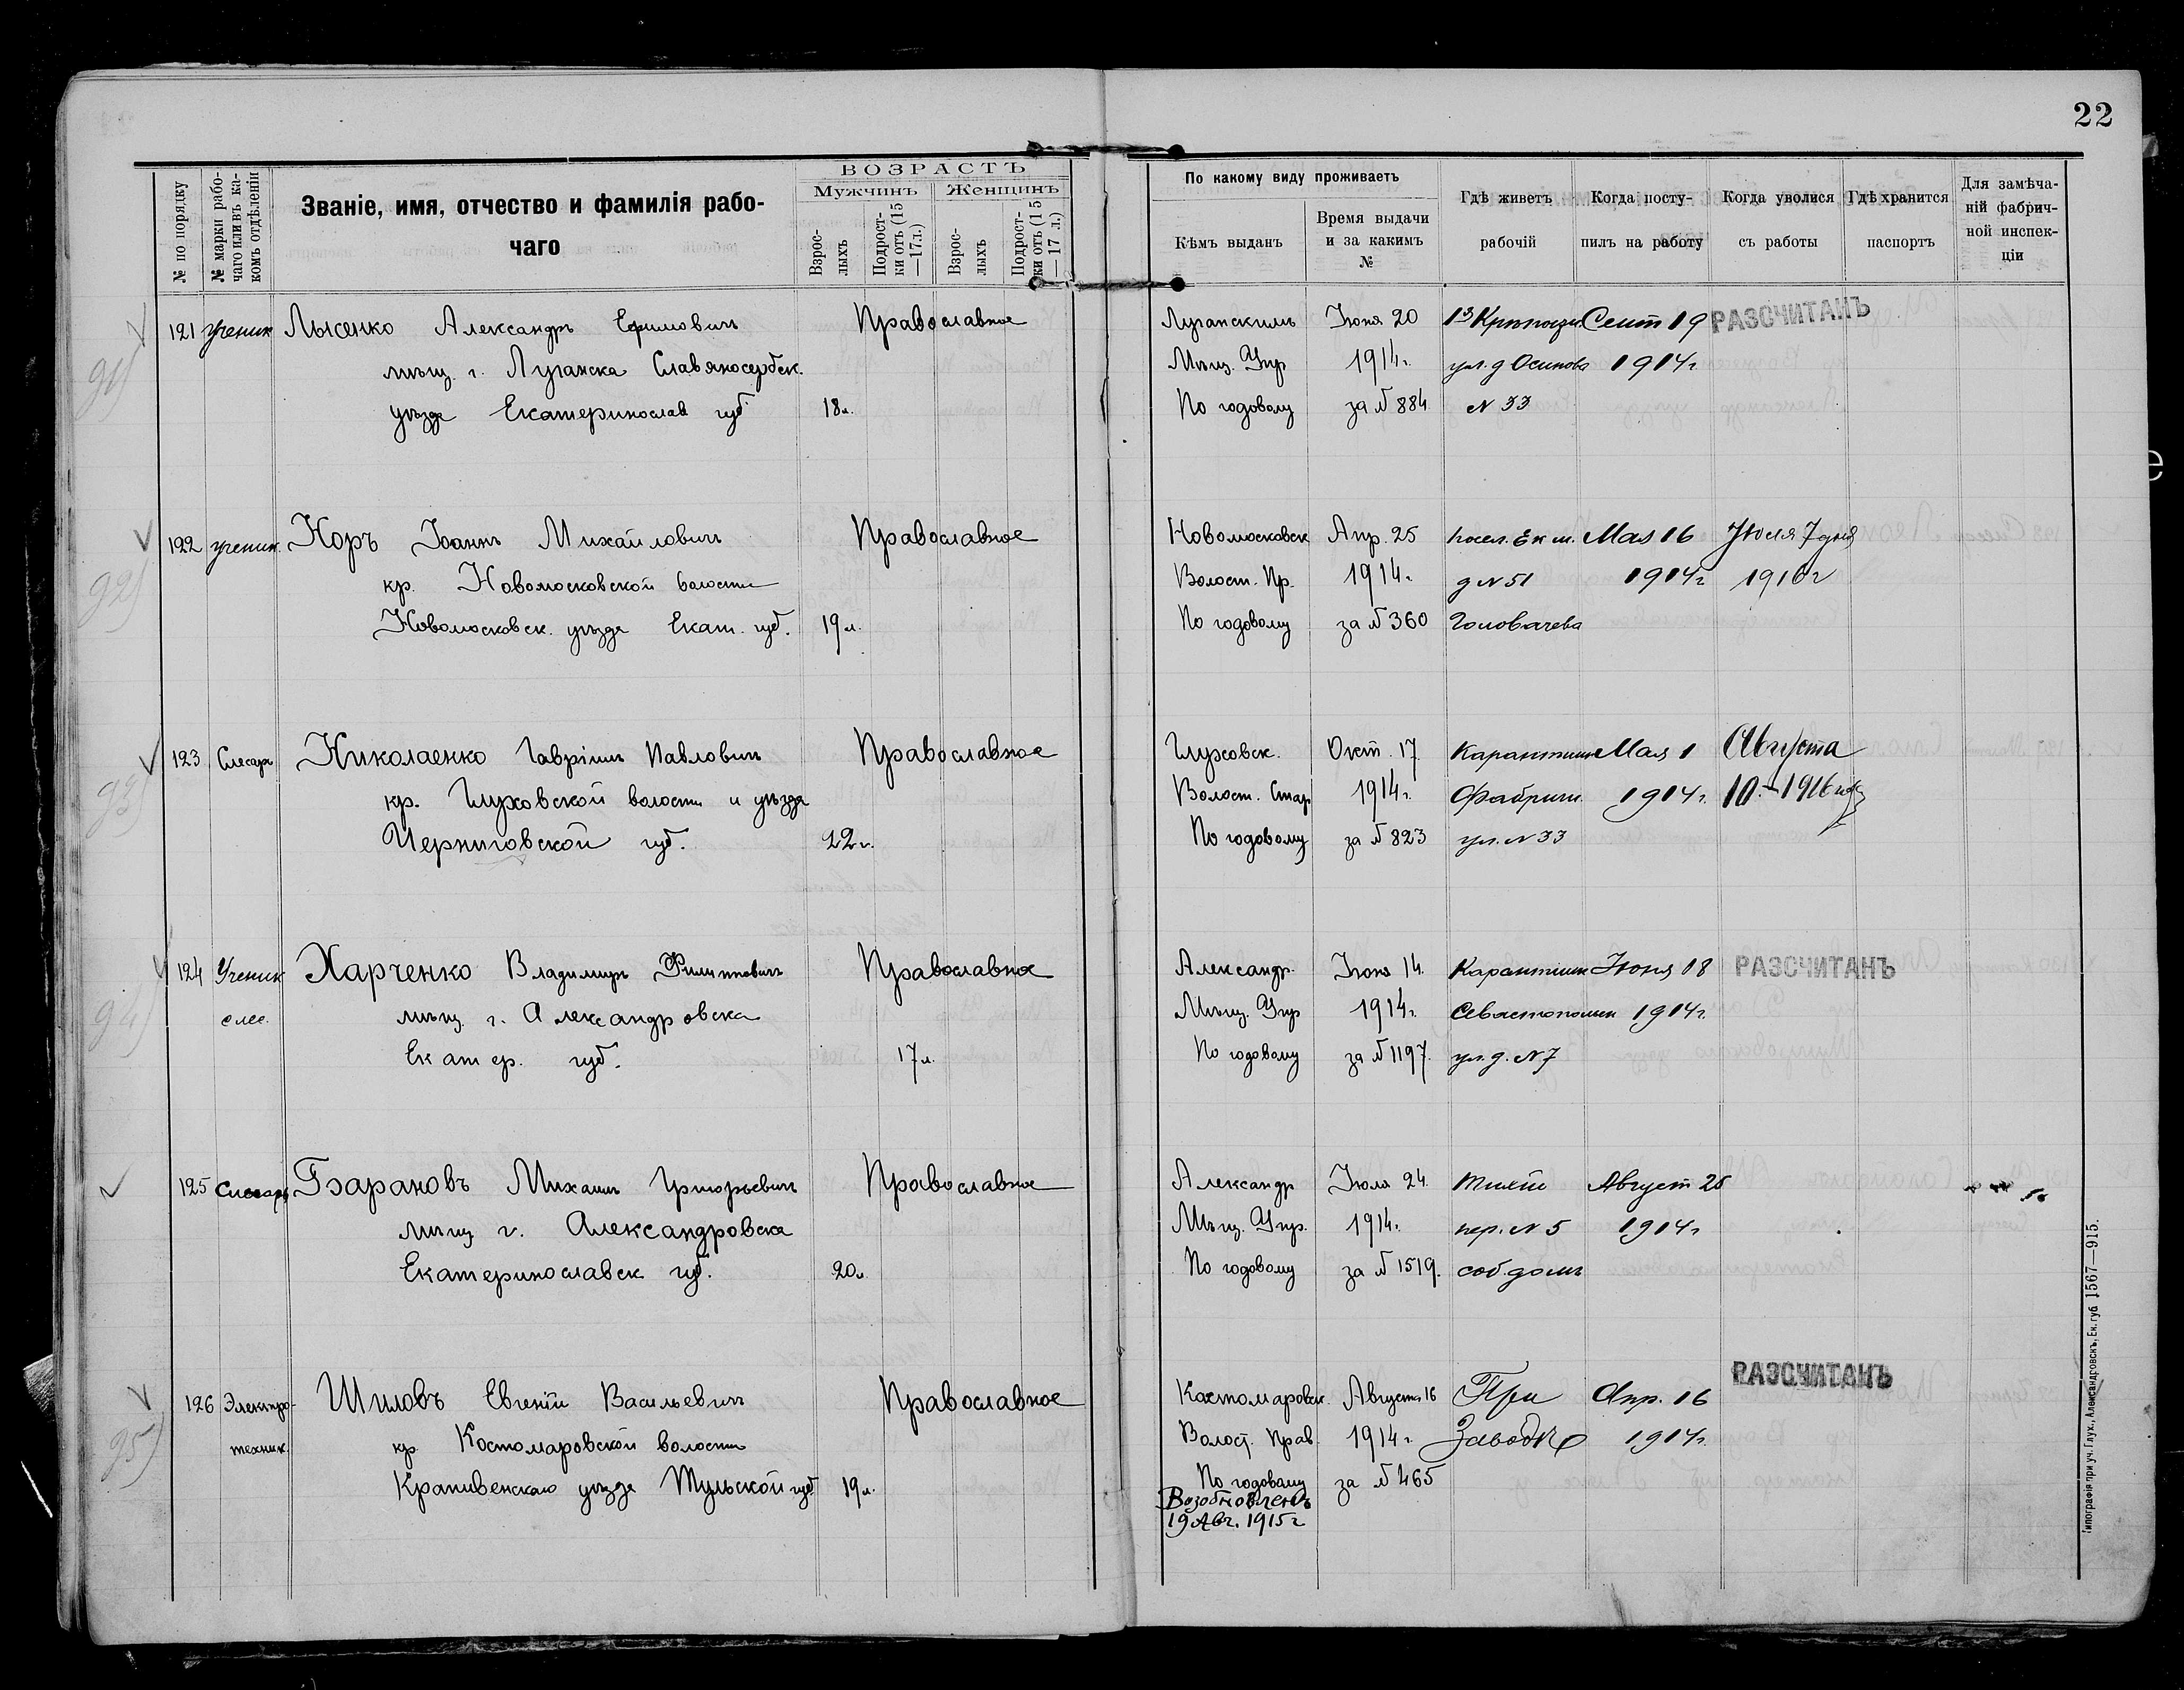 22
№ по порядку
№ марки рабо-
чаго или въ ка-
комъ отдѣленіи
Званіе, имя, отчество и фамилія рабо-
чаго
ВОЗРАСТЪ
Мужчинъ
Женщинъ
Взрос-
лыхъ
Подрост-
ки отъ (15
—17 л.)
Взрос-
лыхъ
Подрост-
ки отъ (15
—17 л.)
По какому виду проживаетъ
Кѣмъ выданъ
Время выдачи
и за какимъ
№
Гдѣ живетъ
рабочій
Когда посту-
пилъ на работу
Когда уволися
съ работы
Гдѣ хранится
паспортъ
Для замѣча-
ній фабрич-
ной инспек-
ціи
91)
121 Ученик Лысенко Александръ Ефимовичъ Православное Луганскимъ Іюня 20 Сент 19 РАЗСЧИТАНЪ
мѣщ. г. Луганска Славяносербск. Мѣщ. Упр 1914г. ул. д Осипова 1914г
уѣзда Екатеринослав губ 18л. По годовому за № 884 № 33
92)
122 ученик. Коръ Іоаннъ Михайловичъ Православное Новомосковск Апр. 25 посел. Ек ж. Мая 16 Іюля 7 дня
кр. Новомосковской волости Волост. Пр. 1914г. д № 51 1914г 1916г
Новомосковск. уѣзда Екат. губ. 19л. По годовому за № 360 Головачева
93)
123 Слесарь Николаенко Гавріилъ Павловичъ Православное Глуховск. Окт. 17 Мая 1 Августа
кр. Глуховской волости и уѣзда Волост. Стар 1914г. Фабричн. 1914г. 10. 1916 года
Черниговской губ. 22г. По годовому за № 823 ул. № 33
94)
124 Ученик Харченко Владимиръ Филипповичъ Православное Александр. Іюня 14. Іюня 18 РАЗСЧИТАНЪ
слес. мѣщ. г. Александровска Мѣщ. Упр 1914г. Севастопольск 1914г.
Екатер. губ. 17л. По годовому за № 1197. ул. д. № 7
125 Слесарь Барановъ Михаилъ Григорьевичъ Православное Александр Іюля 24. Тихій Август 25
мѣщ г. Александровска Мѣщ. Упр. 1914г. пер. № 5 1914г
Екатеринославск губ. 20л. По годовому за № 1519. соб. домъ
95)
126 Электро- Шиловъ Евгеній Васильевичъ Православное Костомаровск. Августа 16 При Апр. 16 РАЗСЧИТАНЪ
техник. кр. Костомаровской волости Волост. Прав. 1914г. Заводѣ 1914г.
Крапивенскаго уѣзда Тульской губ 19л. По годовому за № 465
Возобновленъ
19 Авг. 1915г
Типографія при уч. Глух., Александровскъ, Ек. губ. 1567—915.